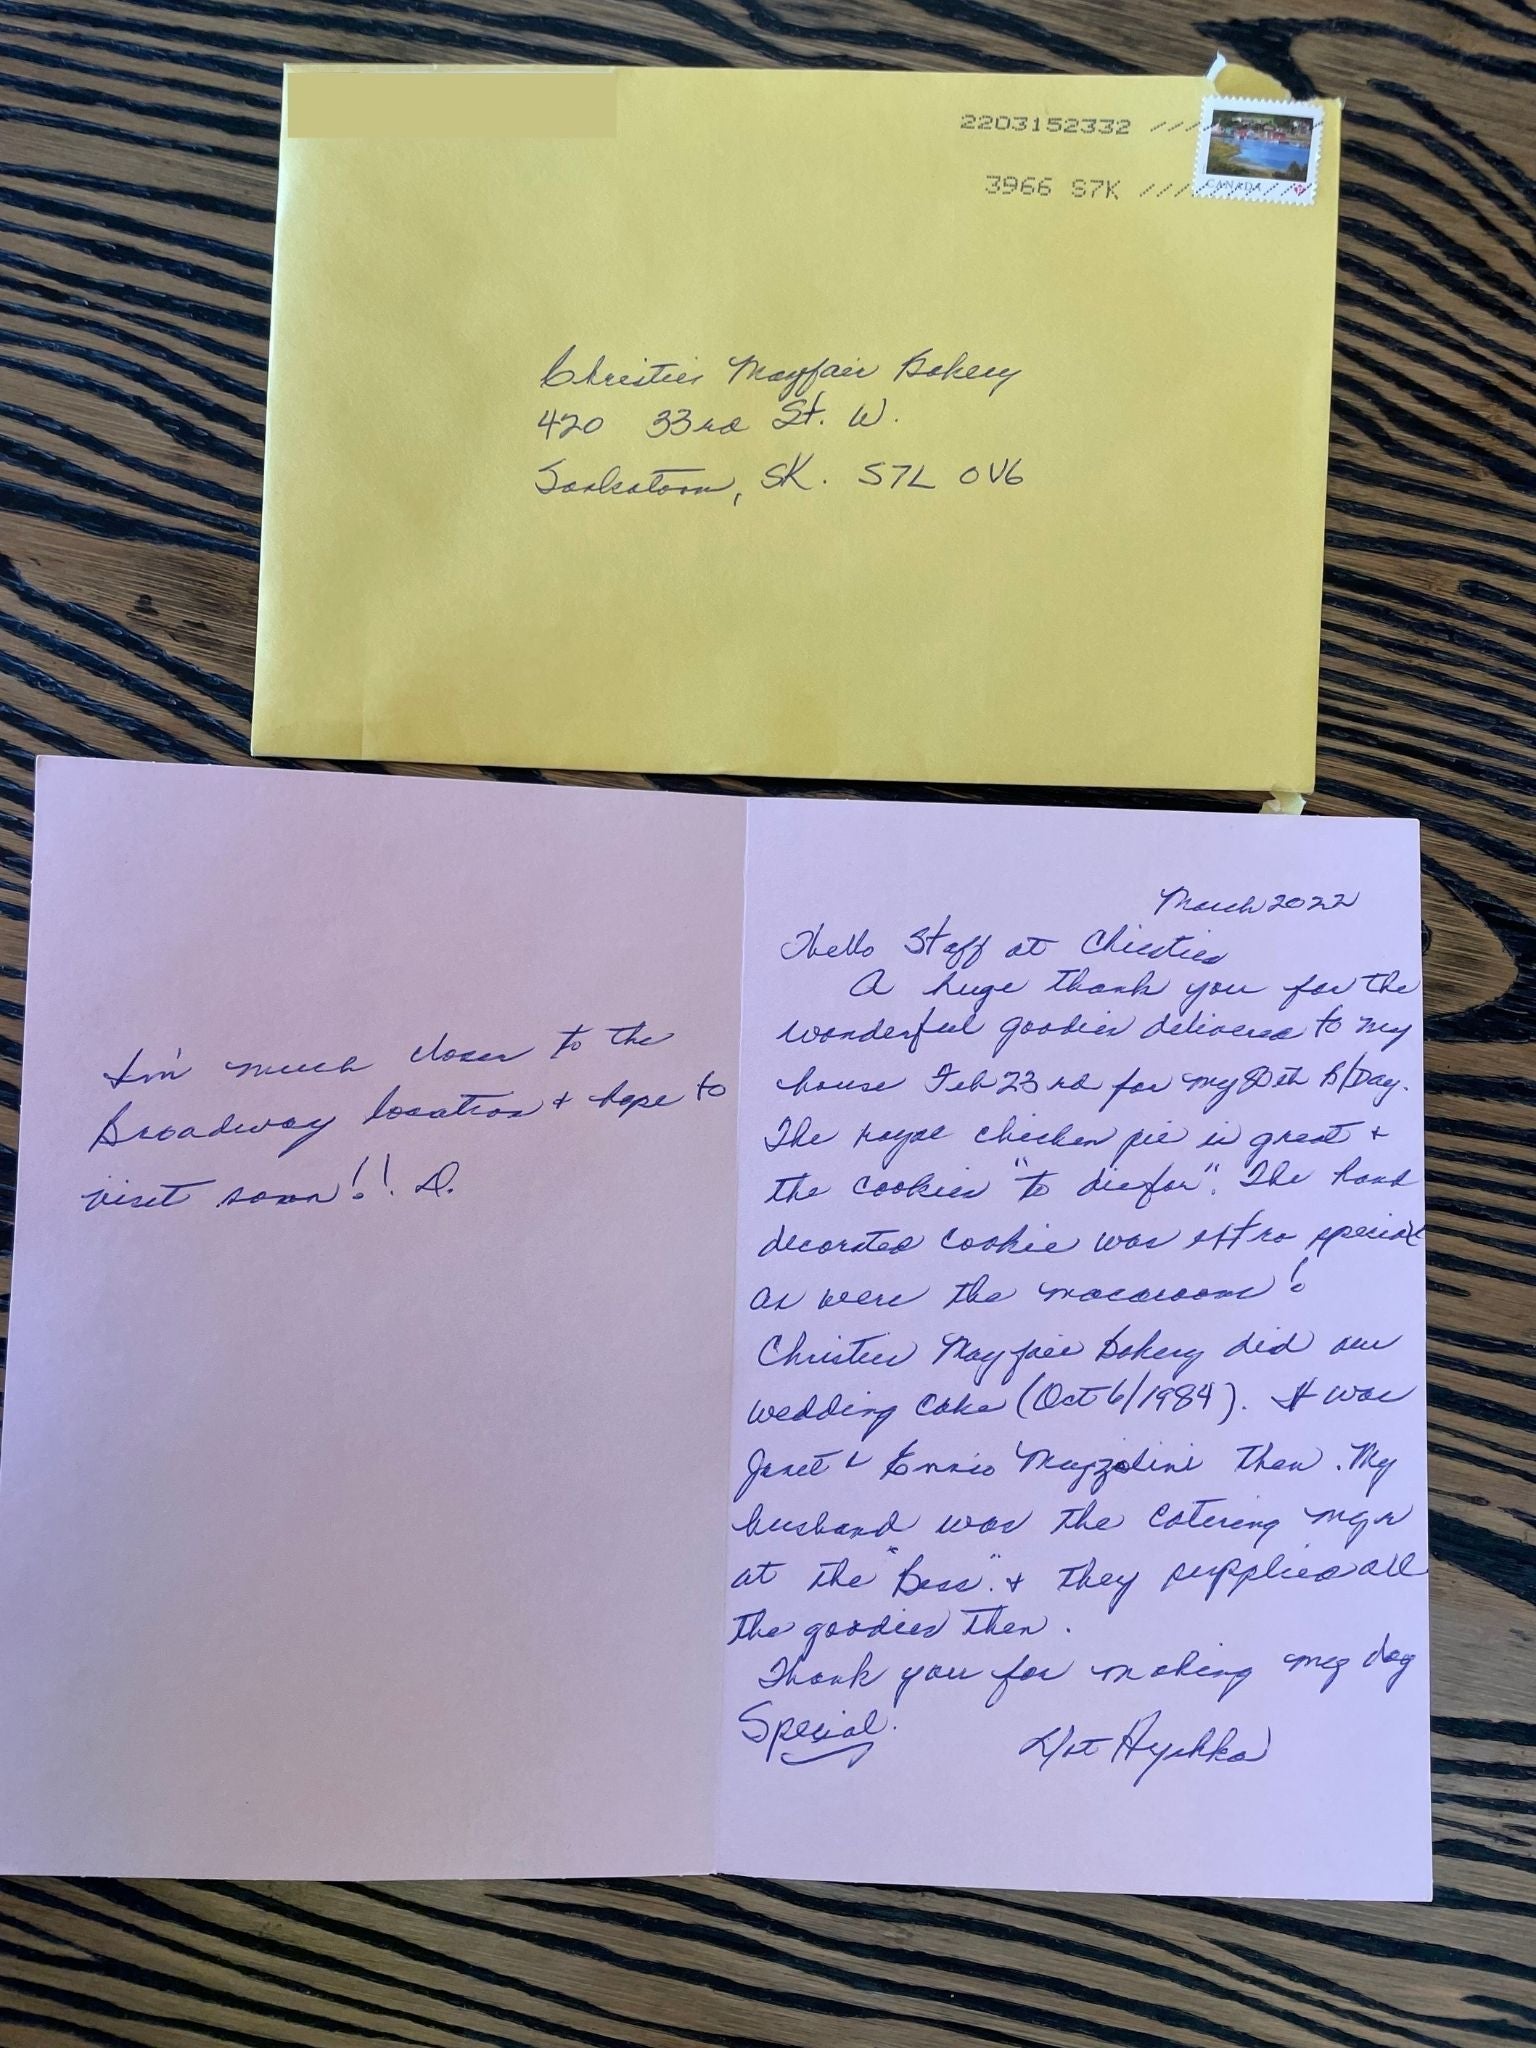 2203152332
3966 S7K
CANADA
Christies Mayfair Bakery
420 33rd St. W.
Saskatoon, SK. S7L 0V6
I'm much closer to the
Broadway location + hope to
visit soon!!. D.
March 2022
Hello Staff at Christies
A huge thank you for the
wonderful goodies delivered to my
house Feb 23rd for my 80th B/Day.
The royal chicken pie is great +
the cookies "to die for". The hand
decorated cookie was extra special
as were the macaroons!
Christies Mayfair Bakery did our
wedding cake (Oct 6/1984). It was
Janet & Ennio Muzzolini then. My
husband was the catering mgr
at the "Bess". + they supplied all
the goodies then.
Thank you for making my day
Special.
Dot Hyshka